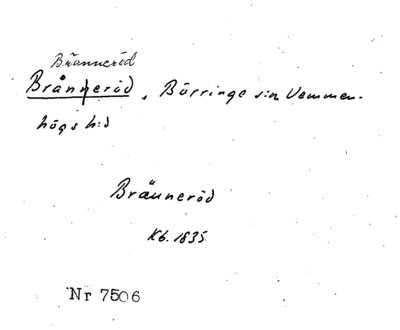 Bränneröd
Brånneröd, Börringe s:n Vemmen-
högs h:d
Bräuneröd
Kb. 1835
Nr 7506